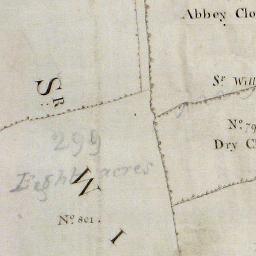 Abbey Clo
Sr. Will
No. 79
Dry Cl
SR.
299
Eight acres
W I
No. 801.